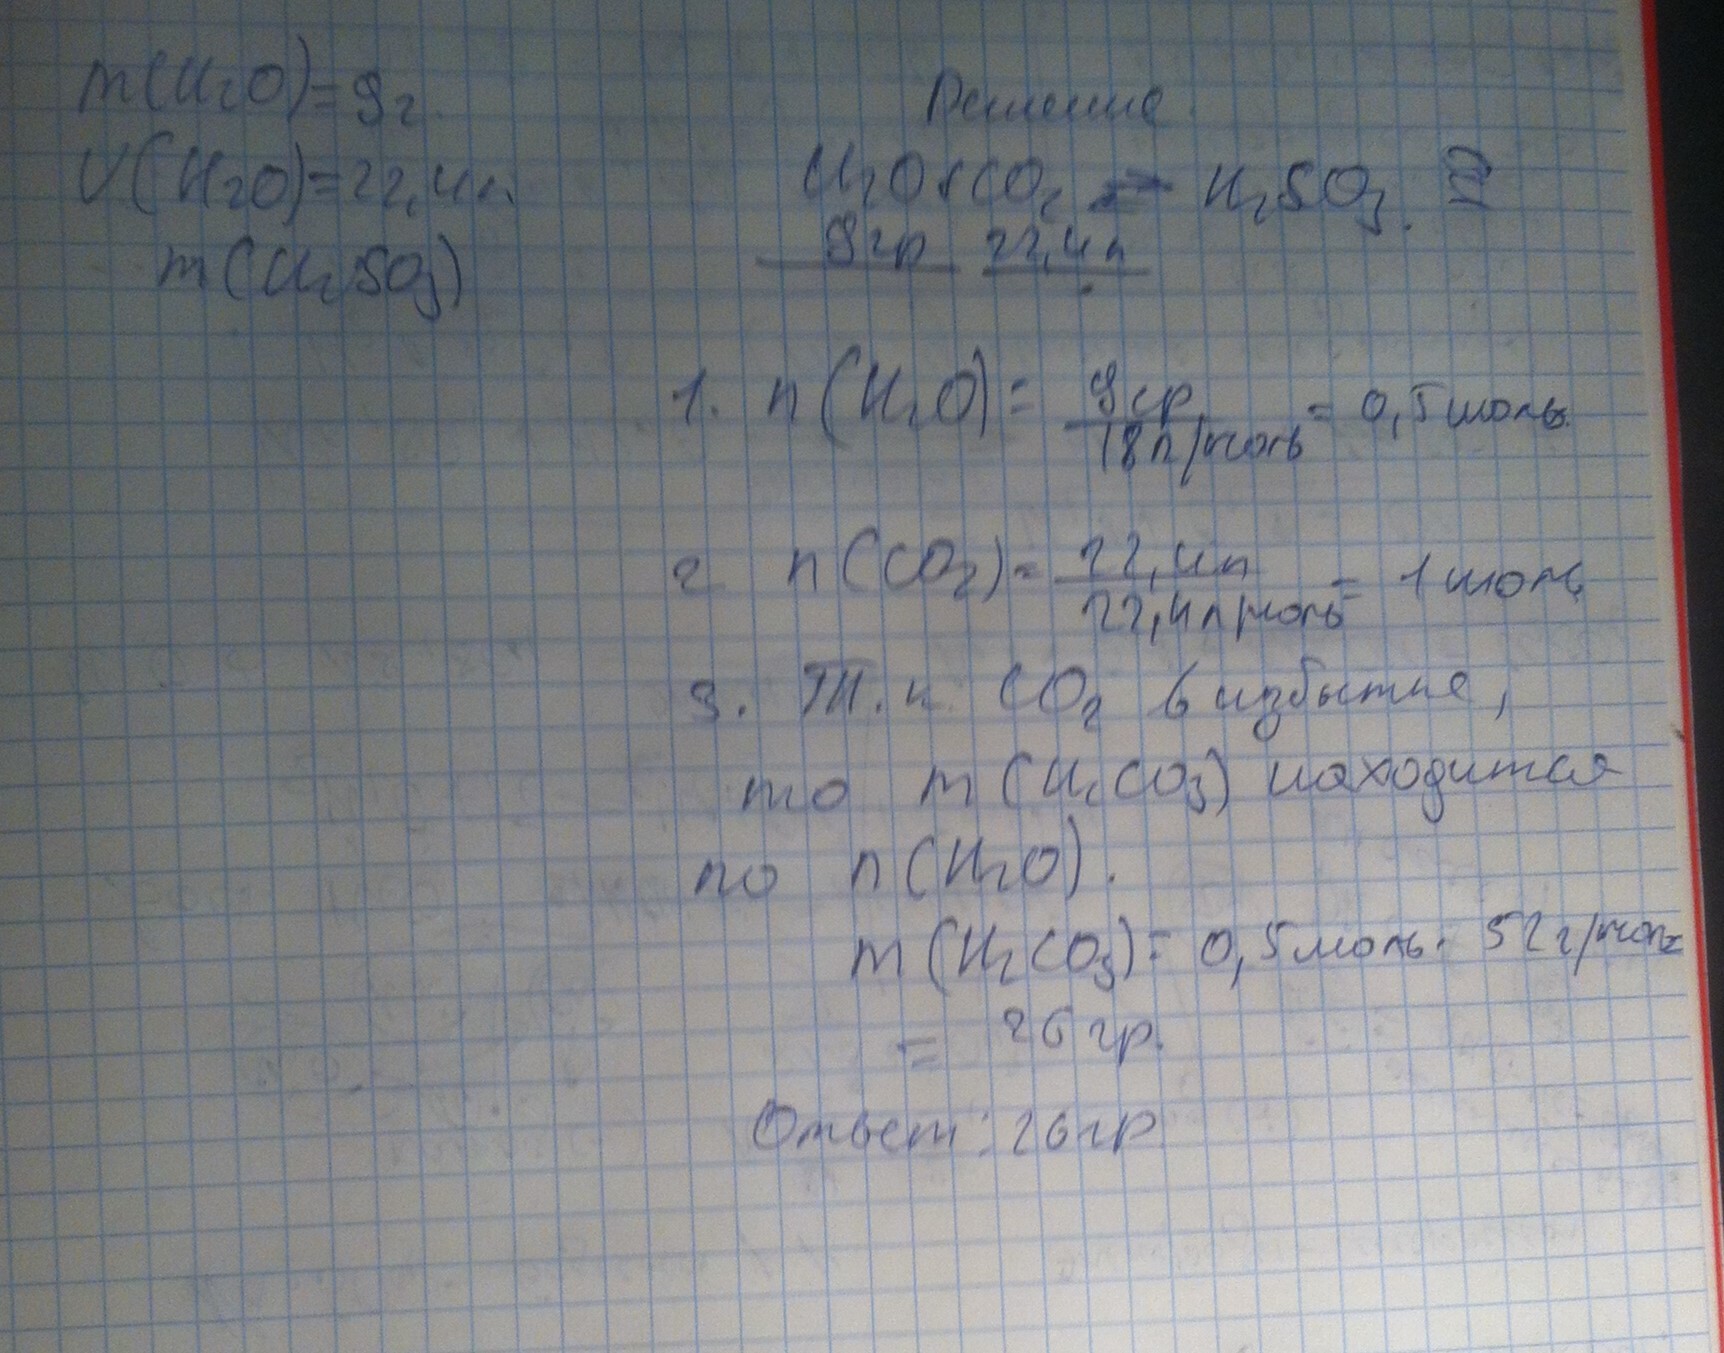 m(H₂O)=9г.
V(H₂O)=22,4л
m(H₂SO₃)
Решение.
H₂O+CO₂ = H₂SO₃.
9гр 22,4л
1. n(H₂O)= 9гр/18г/моль = 0,5моль.
2 n(CO₂)= 22,4л/22,4л/моль = 1моль
3. Т.к CO₂ в избытке,
то m(H₂CO₃) находится
по n(H₂O).
m(H₂CO₃)= 0,5моль · 52г/моль
= 26гр.
Ответ: 26гр